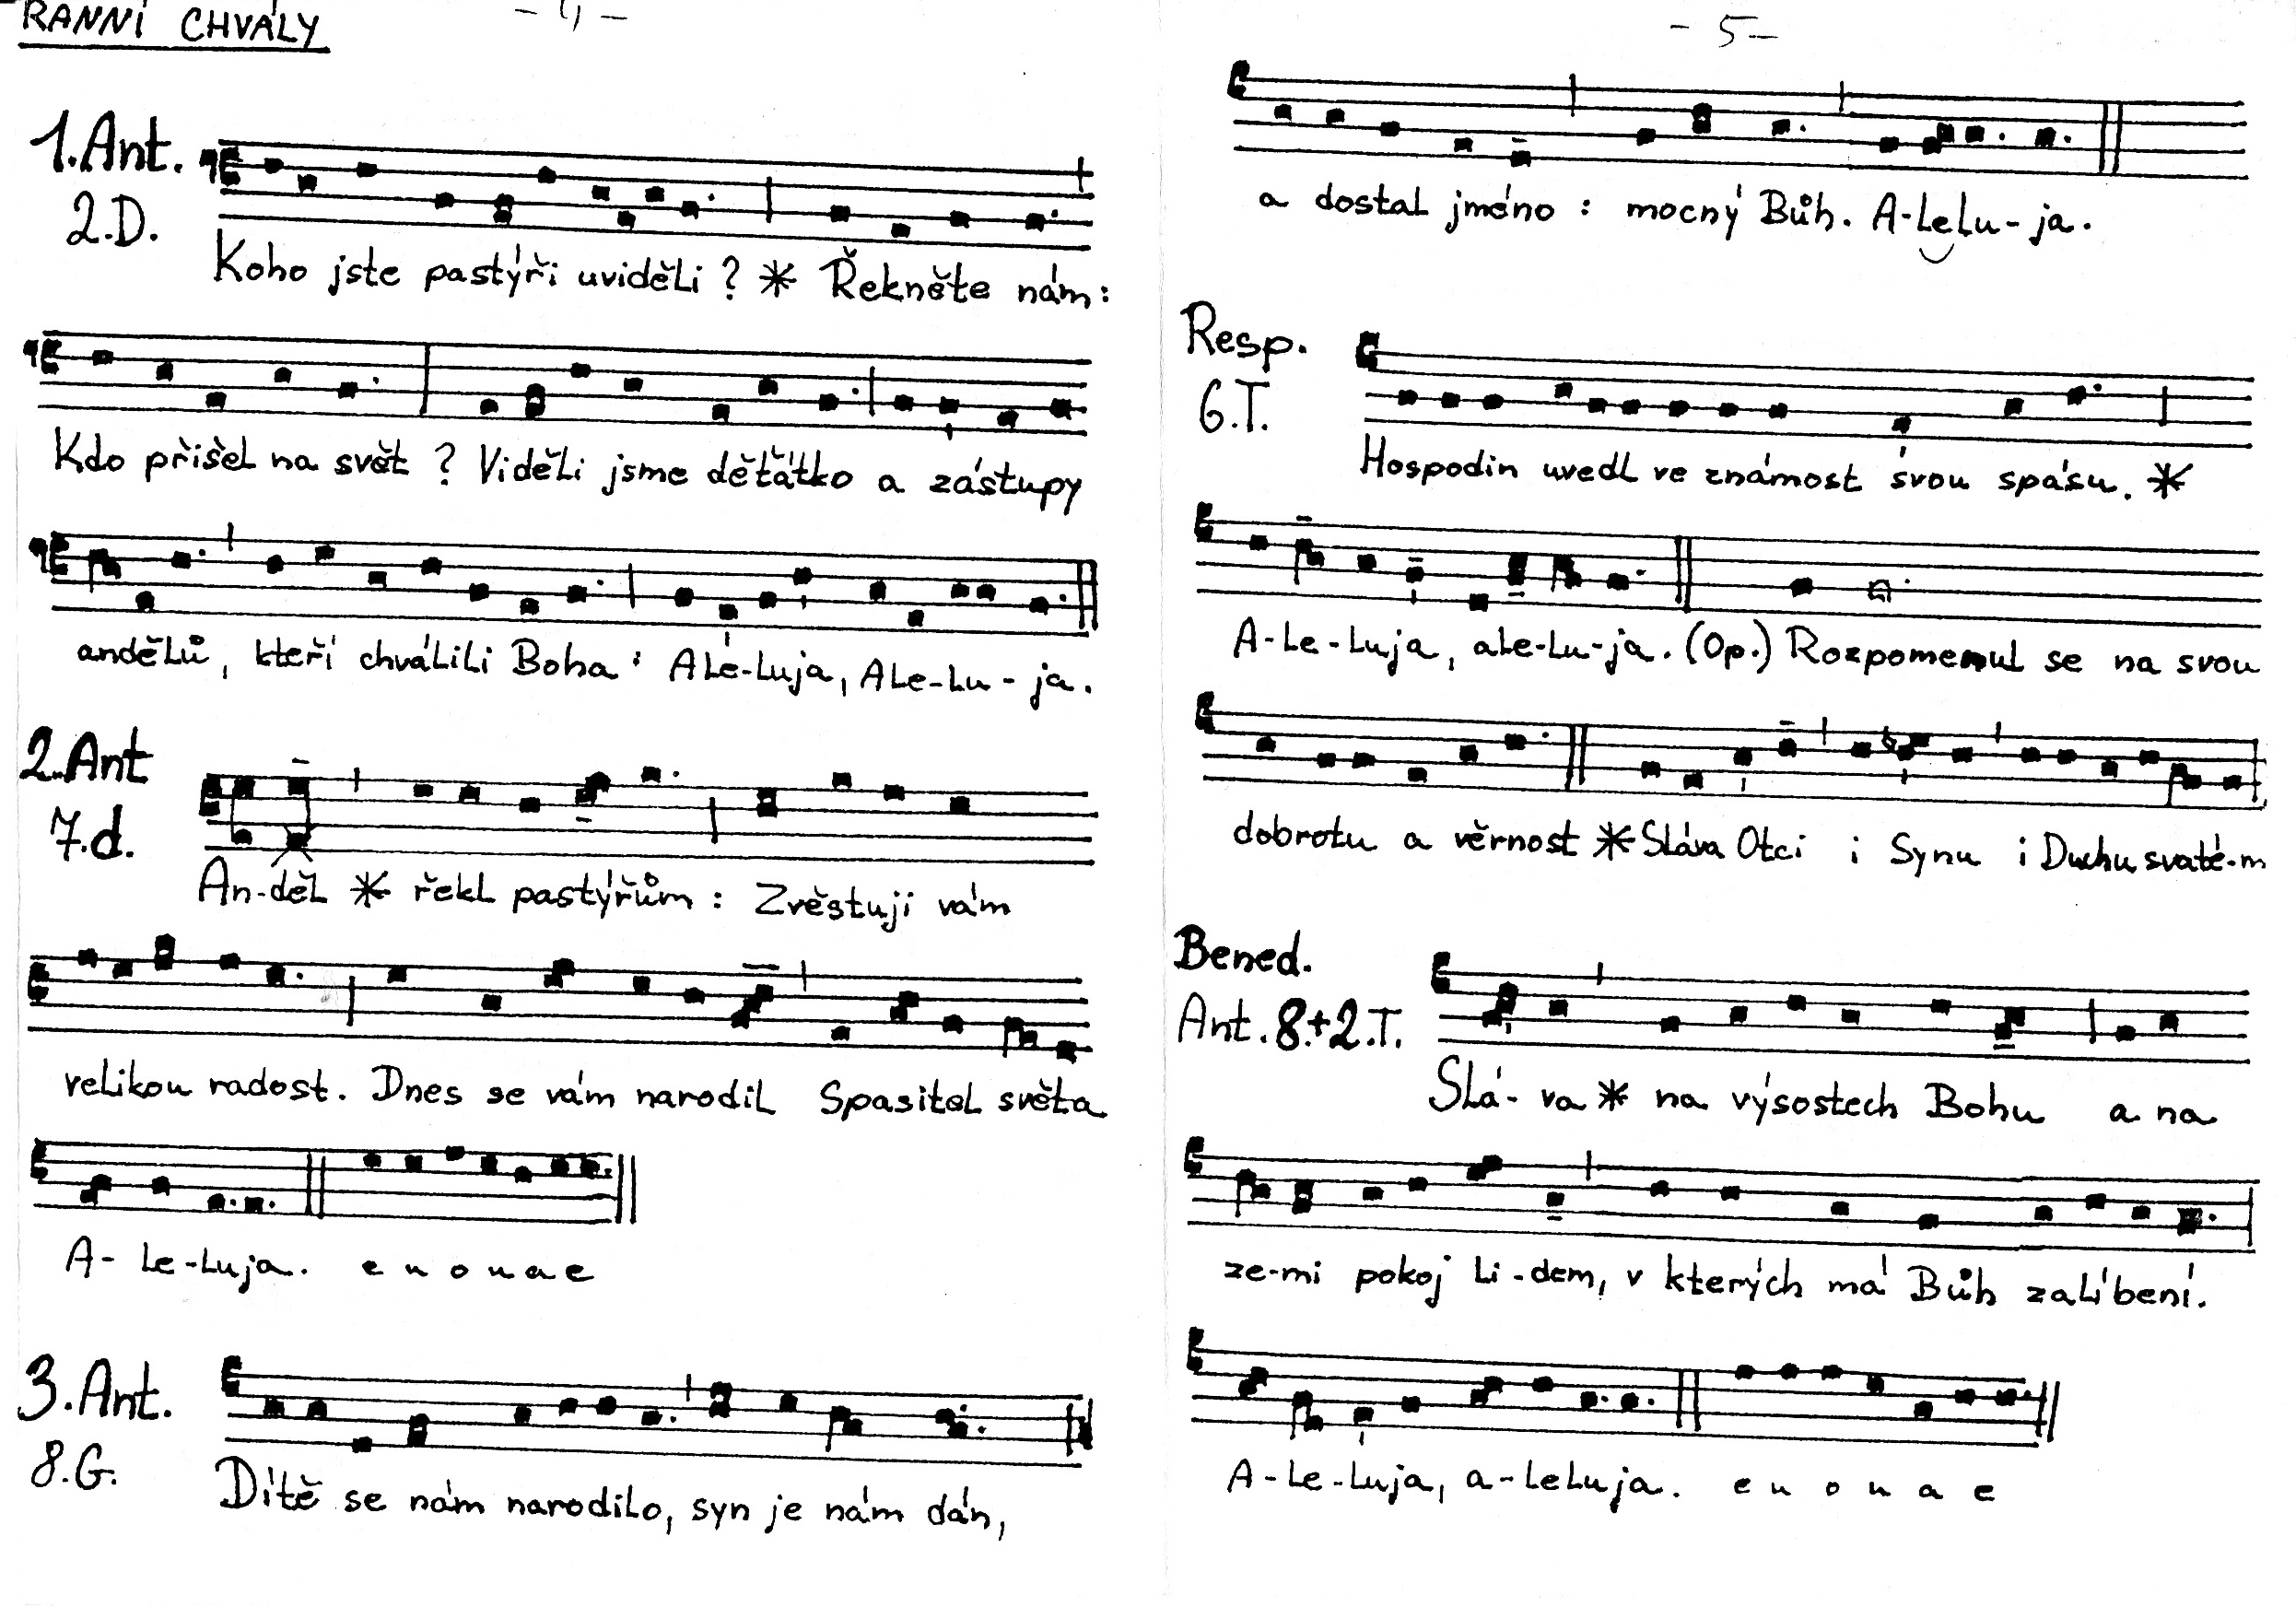 RANNÍ CHVÁLY
- 4 -
1. Ant.
2.D.
Koho jste pastýři uviděli? * Řekněte nám:
Kdo přišel na svět? Viděli jsme děťátko a zástupy
andělů, kteří chválili Boha: Aleluja, Ale-lu-ja.
2. Ant
7.d.
An-děl * řekl pastýřům: Zvěstuji vám
velikou radost. Dnes se vám narodil Spasitel světa
A-le-luja. e u o u a e
3. Ant.
8.G.
Dítě se nám narodilo, syn je nám dán,
- 5 -
a dostal jméno: mocný Bůh. A-lelu-ja.
Resp.
6.T.
Hospodin uvedl ve známost svou spásu. *
A-le-luja, ale-lu-ja. (Op.) Rozpomenul se na svou
dobrotu a věrnost * Sláva Otci i Synu i Duchu svaté-m
Bened.
Ant. 8.+2.T.
Slá-va * na výsostech Bohu a na
ze-mi pokoj li-dem, v kterých má Bůh zalíbení.
A-le-luja, a-leluja. e u o u a e